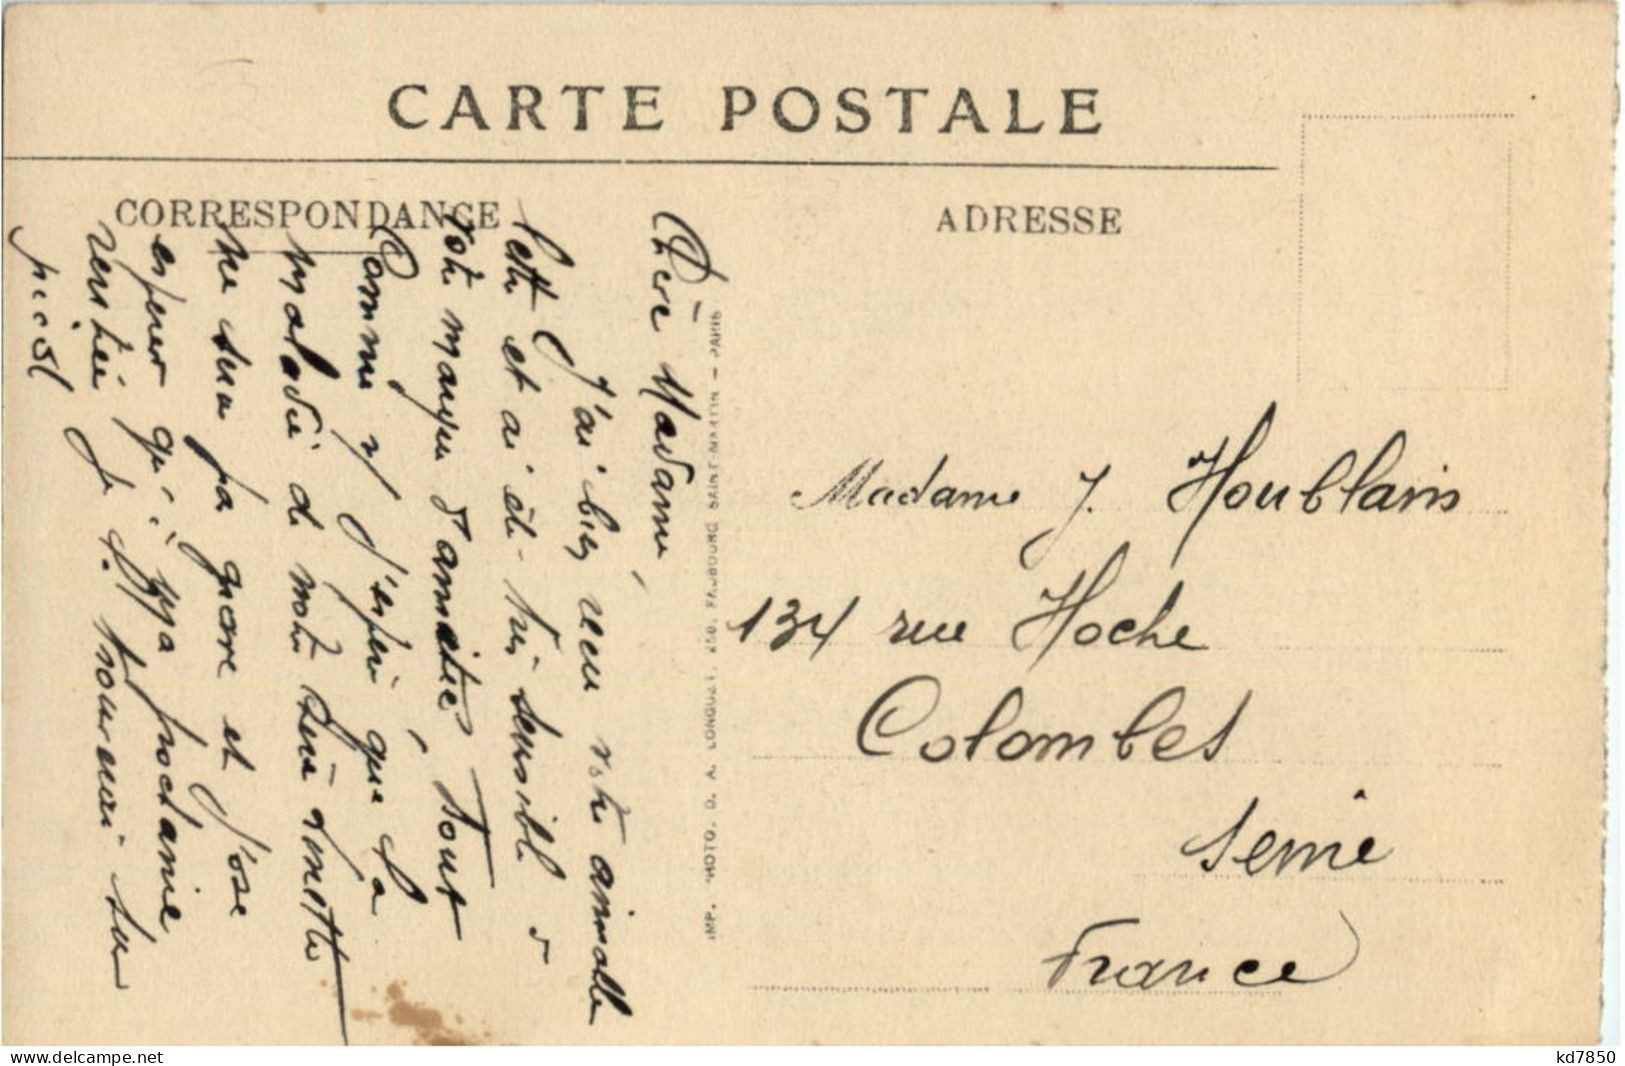 CARTE POSTALE
CORRESPONDANCE
ADRESSE
Chère Madame,
J'ai bien reçu votre aimable
lettre et ai été très sensible à
votre marque d'amitié, Tout
comme j'espère que la
maladie de notre
ne sera pas grave et j'ose
espérer qu'à prochaine
je trouverai sur
pied
IMP. PHOTO. D. A. LONGUET, 250, FAUBOURG SAINT-MARTIN - PARIS
Madame J. Houblains
134 rue Hoche
Colombes
Seine
France
delcampe.net
kd7850